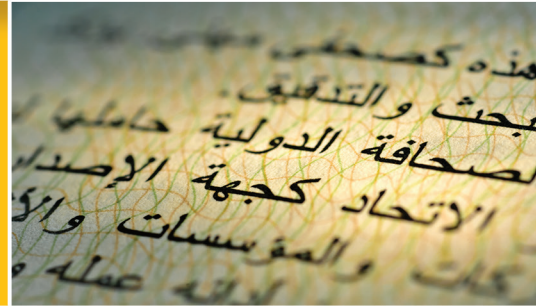 هذه كصحفي
لبحث والتدقيق.
لصحافة الدولية حاملها
الاتحاد كجهة الإصدار
والمؤسسات والأ
عمله و